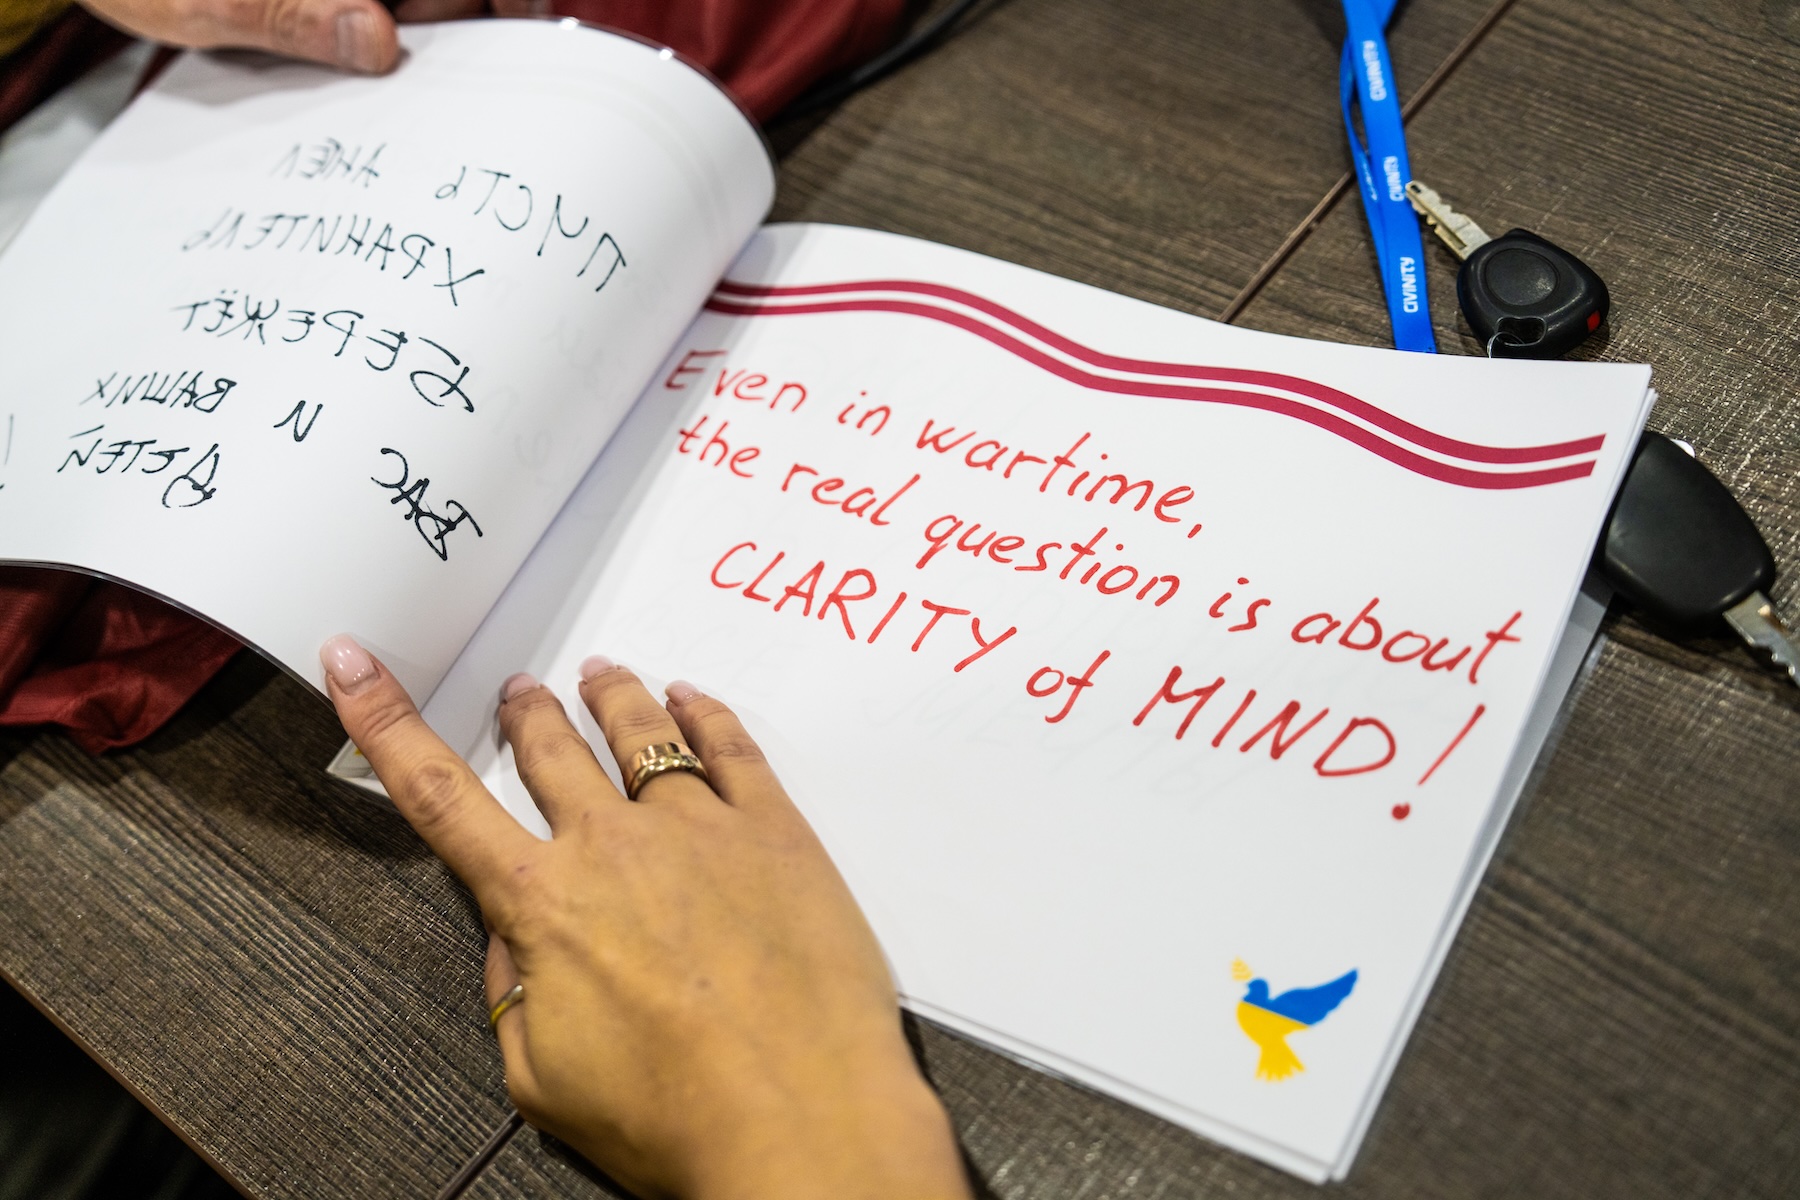 ПУСТЬ АНЕЛ
ХРАНИТЕЛЬ
БЕРЕЖЁТ
ВАС И ВАШИХ
ДЕТЕЙ !
Even in wartime,
the real question is about
CLARITY of MIND!
CIVINITY
CIVINITY
CIVINITY